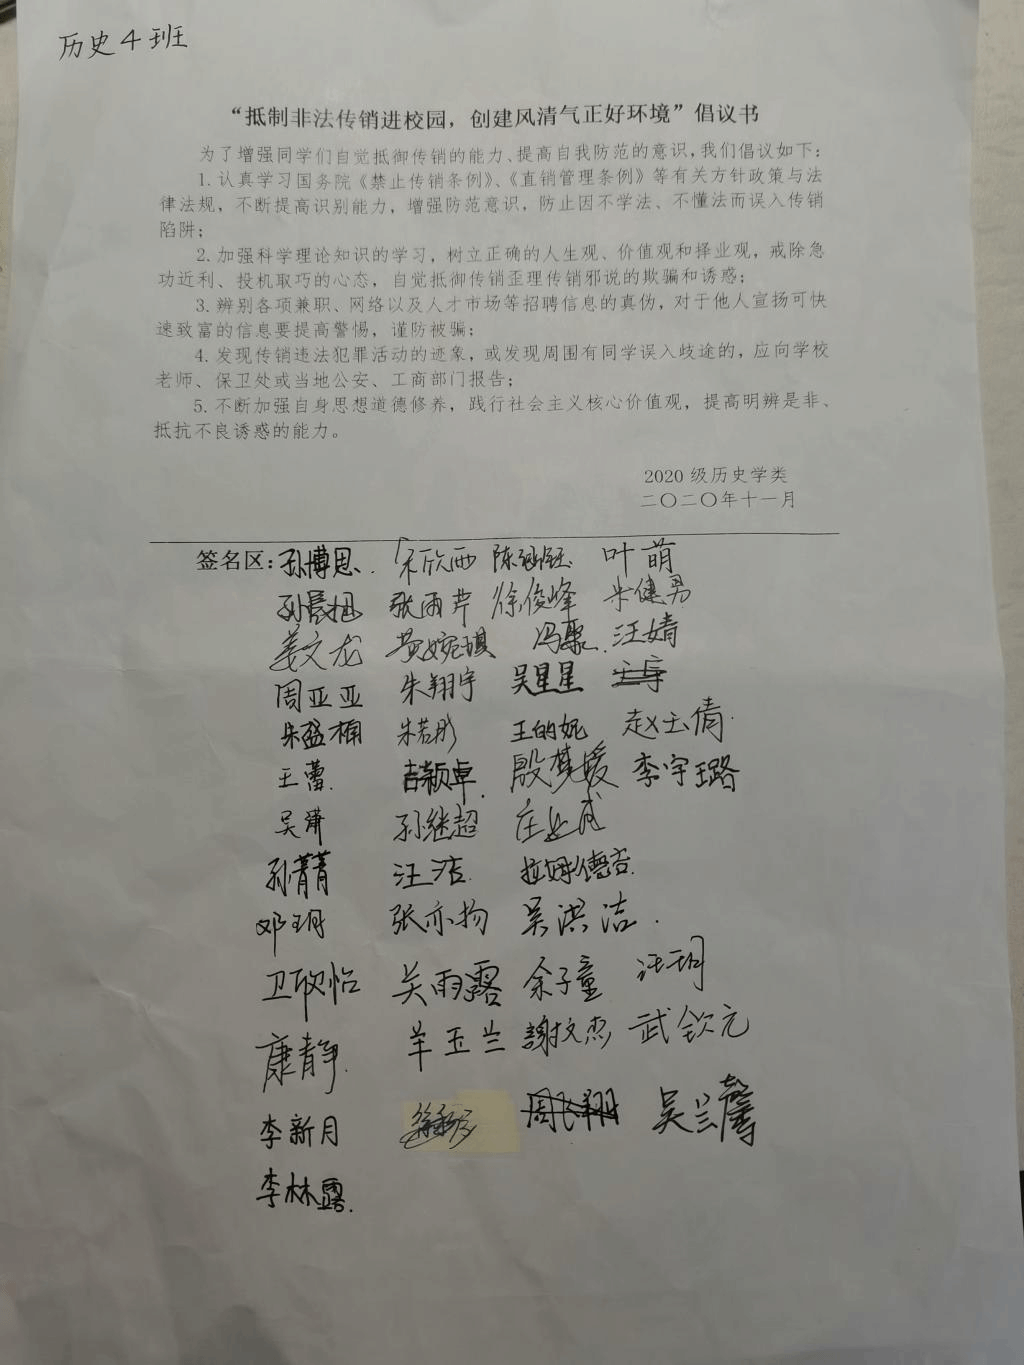 历史4班
“抵制非法传销进校园，创建风清气正好环境”倡议书
为了增强同学们自觉抵御传销的能力、提高自我防范的意识，我们倡议如下：
1.认真学习国务院《禁止传销条例》、《直销管理条例》等有关方针政策与法
律法规，不断提高识别能力，增强防范意识，防止因不学法、不懂法而误入传销
陷阱；
2.加强科学理论知识的学习，树立正确的人生观、价值观和择业观，戒除急
功近利、投机取巧的心态，自觉抵御传销歪理传销邪说的欺骗和诱惑；
3.辨别各项兼职、网络以及人才市场等招聘信息的真伪，对于他人宣扬可快
速致富的信息要提高警惕，谨防被骗；
4.发现传销违法犯罪活动的迹象，或发现周围有同学误入歧途的，应向学校
老师、保卫处或当地公安、工商部门报告；
5.不断加强自身思想道德修养，践行社会主义核心价值观，提高明辨是非、
抵抗不良诱惑的能力。
2020级历史学类
二〇二〇年十一月
签名区：孙博恩 宋欣西 叶萌
张雨芹 徐俊峰 朱健男
姜文龙 黄婉琪 冯聚 汪婧
周亚亚 朱翔宇 吴星星
朱盈楠 朱若彤 王的妮 赵玉倩
王蕾 吉颖卓 殷梦媛 李宇璐
吴萧 孙继超
孙菁菁 汪洁 拉姆德吉
邓玥 张亦扬 吴洪洁
卫聪怡 关雨露 余子童 汪玥
康静 羊玉兰 谢文杰 武钦元
李新月 周长翔 吴兰馨
李林露